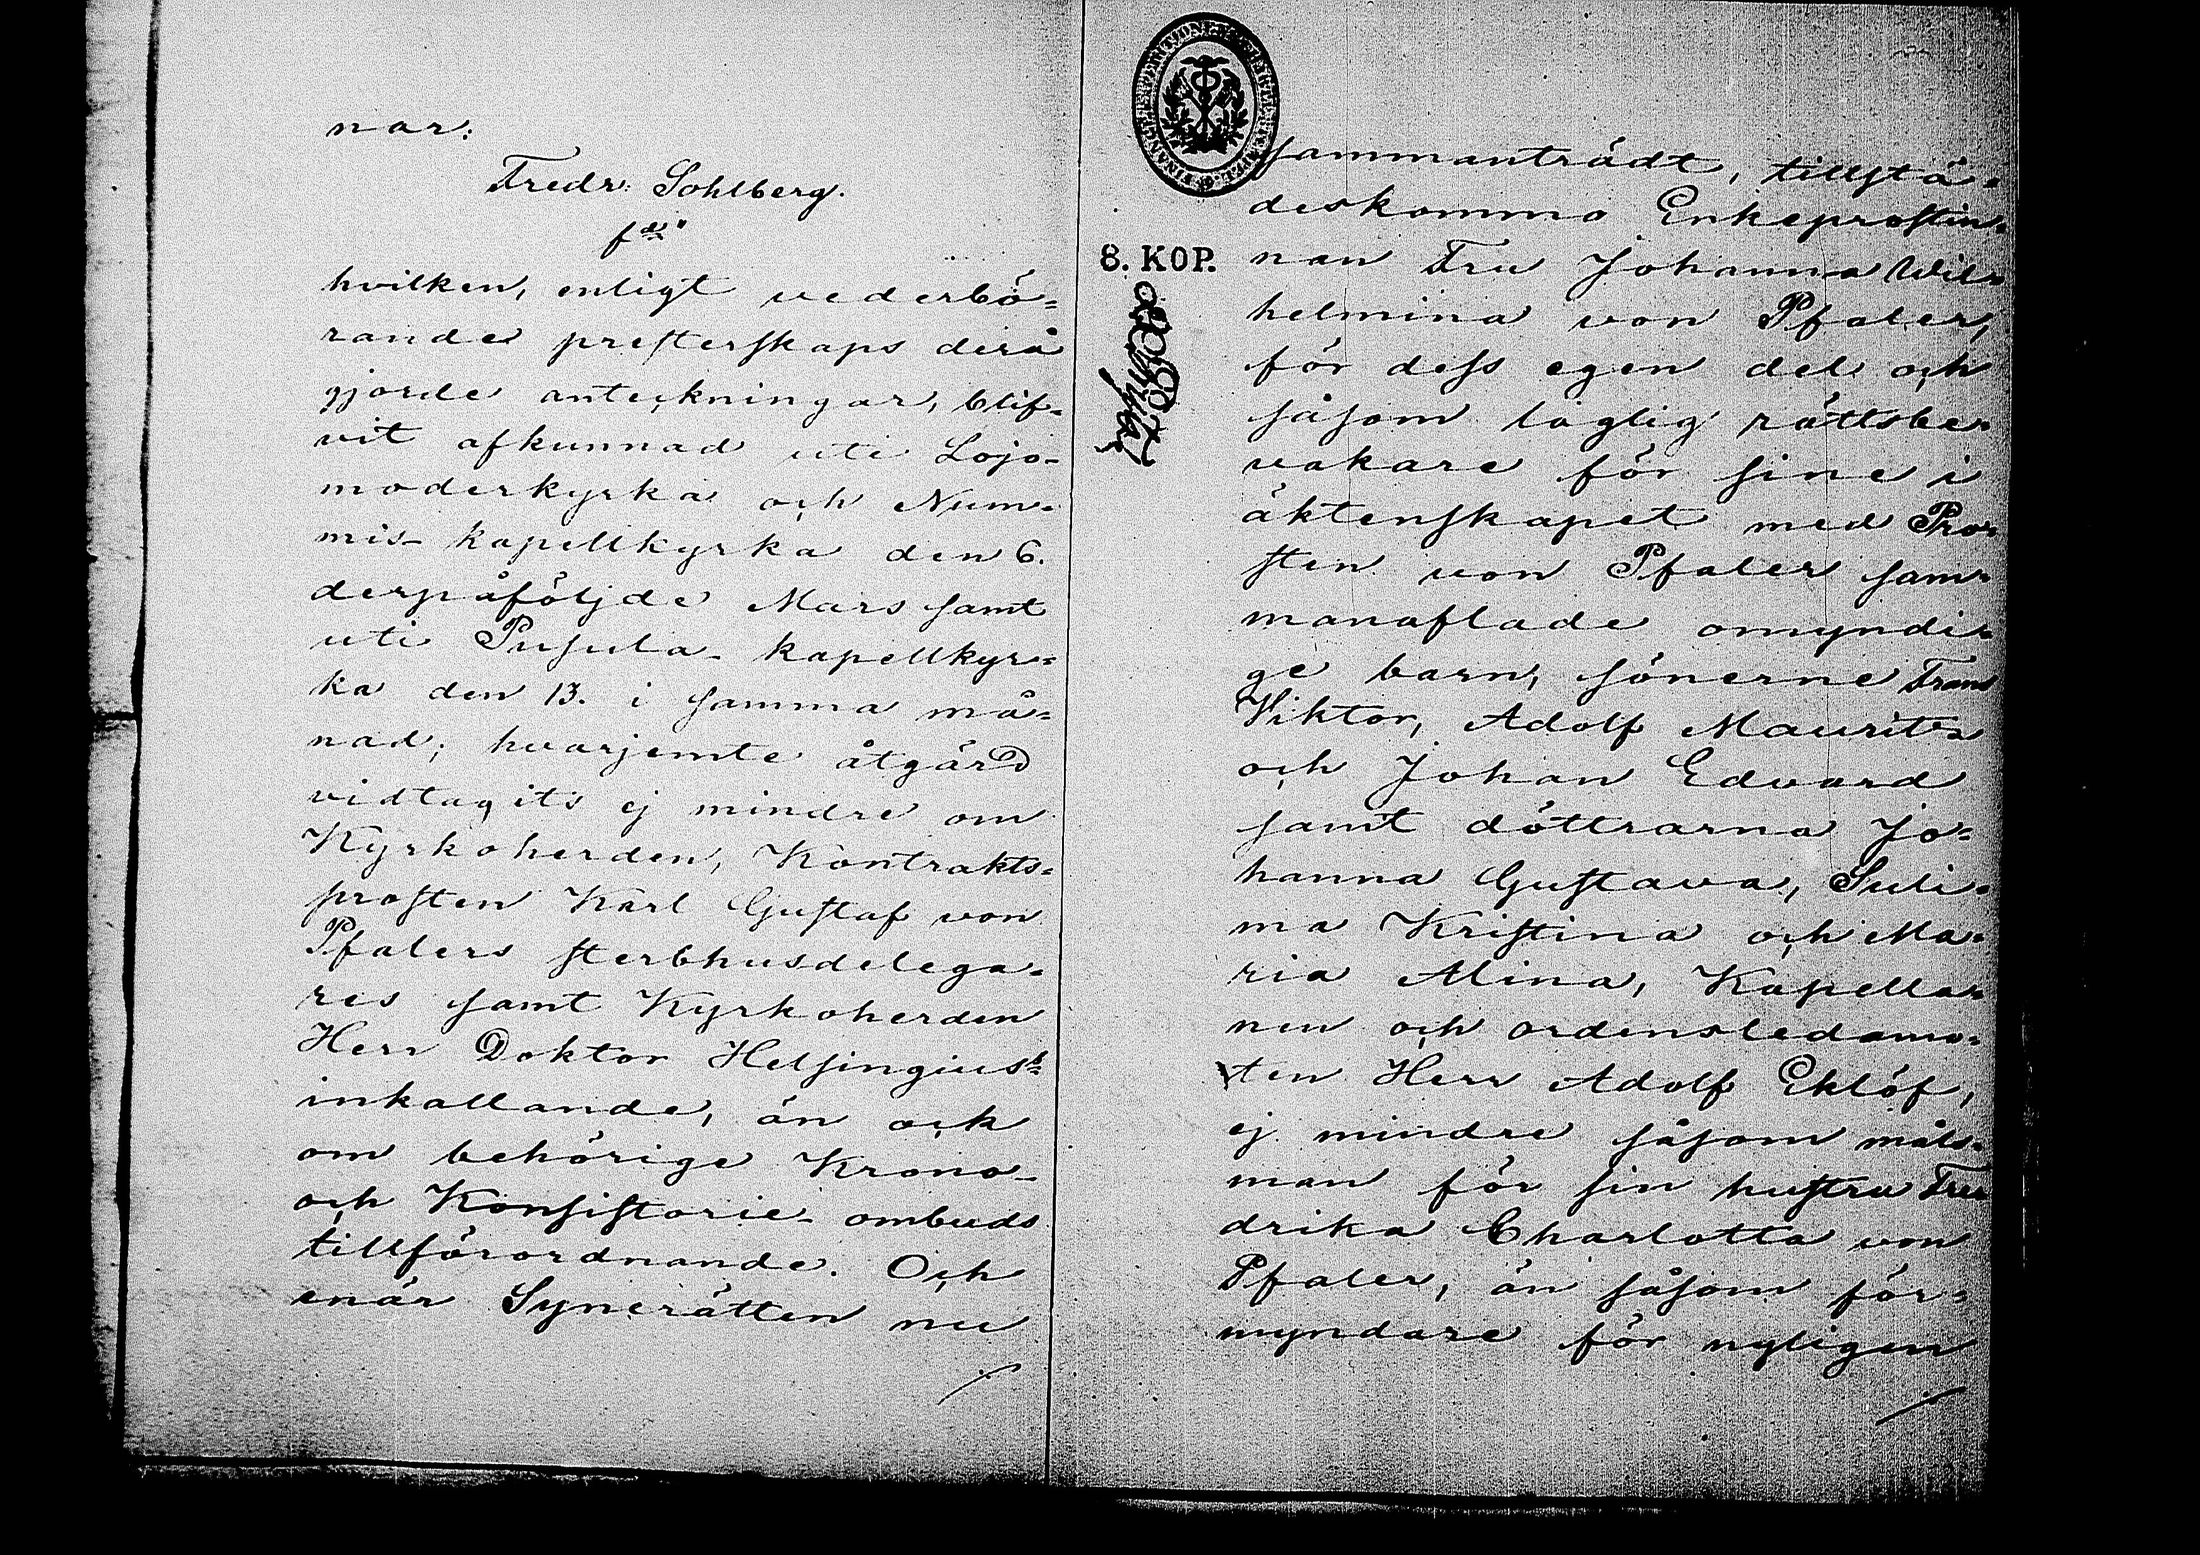 nar:
Fredr: Sohlberg.
hvilken, enligt vederbö=
rande presterskaps derå
gjorde anteckningar, blif=
vit afkunnad uti Lojo-
moderkyrka och Num=
mis- kapellkyrka den 6.
derpåföljde Mars samt
uti Pusula- kapellkyr=
ka den 13. i samma må=
nad; hvarjemte åtgärd
vidtagits ej mindre om
Kyrkoherden, Kontrakts=
prosten Karl Gustaf von
Pfalers sterbhusdelega=
res samt Kyrkoherden
Herr Doktor Helsingius's
inkallande, än ock
om behörige Krono-
och Konsistorie- ombuds
tillförordnande. Och
enär Synerätten nu
8. KOP.
sammanträdt, tillstä=
deskommo Enkeprostin=
nan Fru Johanna Wil=
helmina von Pfaler,
för dess egen del och
såsom laglig rättsbe=
vakare för sine i
äktenskapet med Pro=
sten von Pfaler sam=
manaflade omyndi=
ge barn, sönerne Frans
Viktor, Adolf Maurits
och Johan Edvard
samt döttrarna Jo=
hanna Gustava, Suli=
ma Kristina och Ma=
ria Alina, Kapella=
nen och ordensledamo=
ten Herr Adolf Eklöf,
ej mindre såsom måls=
man för sin hustru Fre
drika Charlotta von
Pfaler, än såsom för=
myndare för nyligen